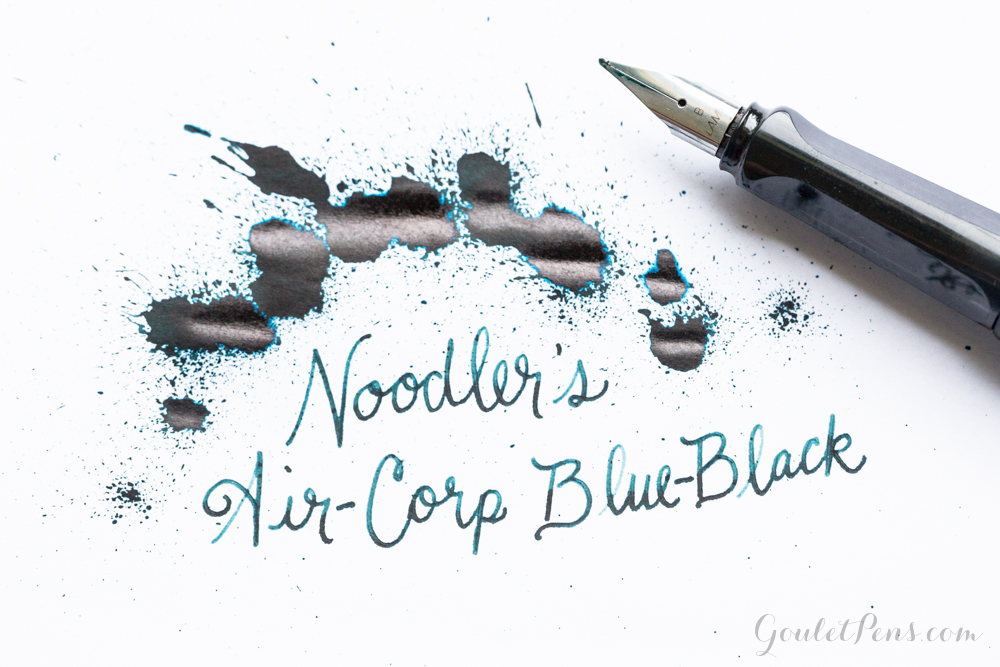 B
LAMY
Noodler's
Air-Corp Blue-Black
GouletPens.com